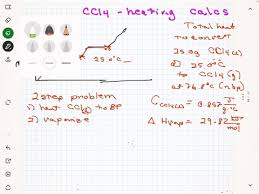 CCl4 - heating calcs
Total heat
to convert
25.0g CCl4(l)
@ 25.0°C
to CCl4(g)
at 76.8°C (nbp)
25.0°C
2 step problem
1) heat CCl4(l) to BP
2) vaporize
C CCl4(l) = 0.857 J/g·°C
Δ Hvap = 29.82 kJ/mol